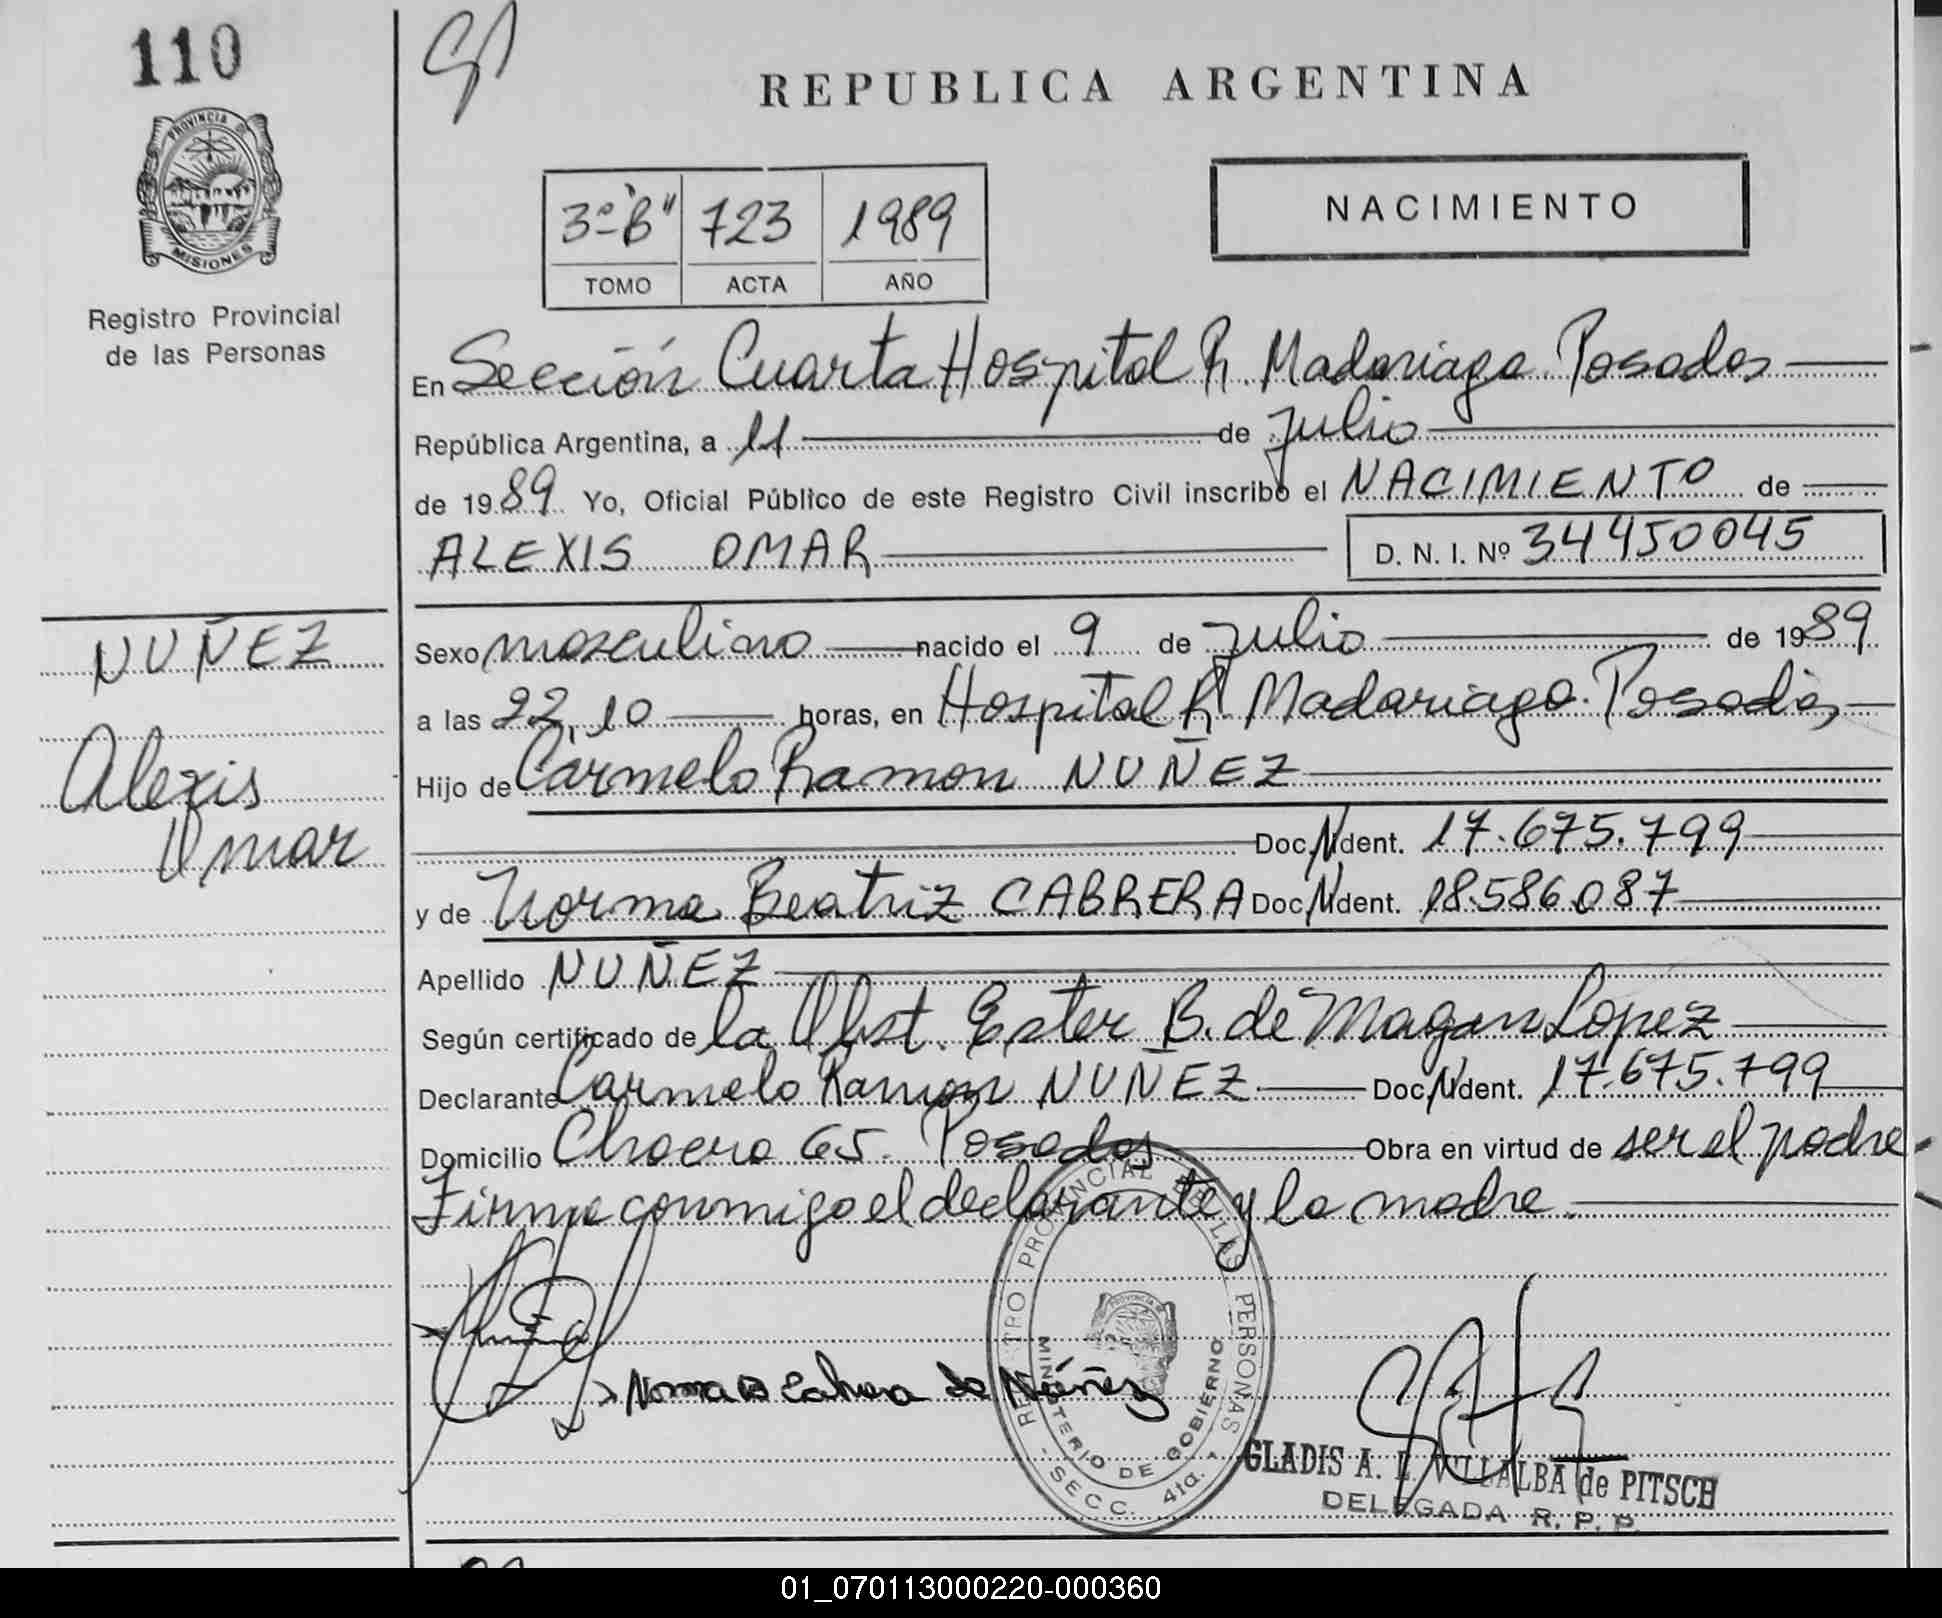 110
REPUBLICA ARGENTINA
PROVINCIA DE
MISIONES
Registro Provincial
de las Personas
3º "B" 723 1989
TOMO ACTA AÑO
NACIMIENTO
En Sección Cuarta Hospital R. Madariaga. Posadas
República Argentina, a 11 de Julio
de 1989 Yo, Oficial Público de este Registro Civil inscribo el NACIMIENTO de
ALEXIS OMAR D. N. I. Nº 34450045
NUÑEZ
Alexis
Omar
Sexo masculino nacido el 9 de Julio de 1989
a las 22,10 horas, en Hospital R. Madariaga. Posadas
Hijo de Carmelo Ramon NUÑEZ
Doc. Ident. 17.675.799
y de Norma Beatriz CABRERA Doc. Ident. 18.586.087
Apellido NUÑEZ
Según certificado de la Obst. Ester B. de Magan Lopez
Declarante Carmelo Ramon NUÑEZ Doc. Ident. 17.675.799
Domicilio 65. Posadas Obra en virtud de ser el padre
Firma conmigo el declarante y la madre.
Norma B Cabrera de Núñez
REGISTRO PROVINCIAL DE LAS PERSONAS
MINISTERIO DE GOBIERNO
- SECC. 4ta. -
GLADIS A. VILLALBA de PITSCH
DELEGADA R. P. P.
01_070113000220-000360